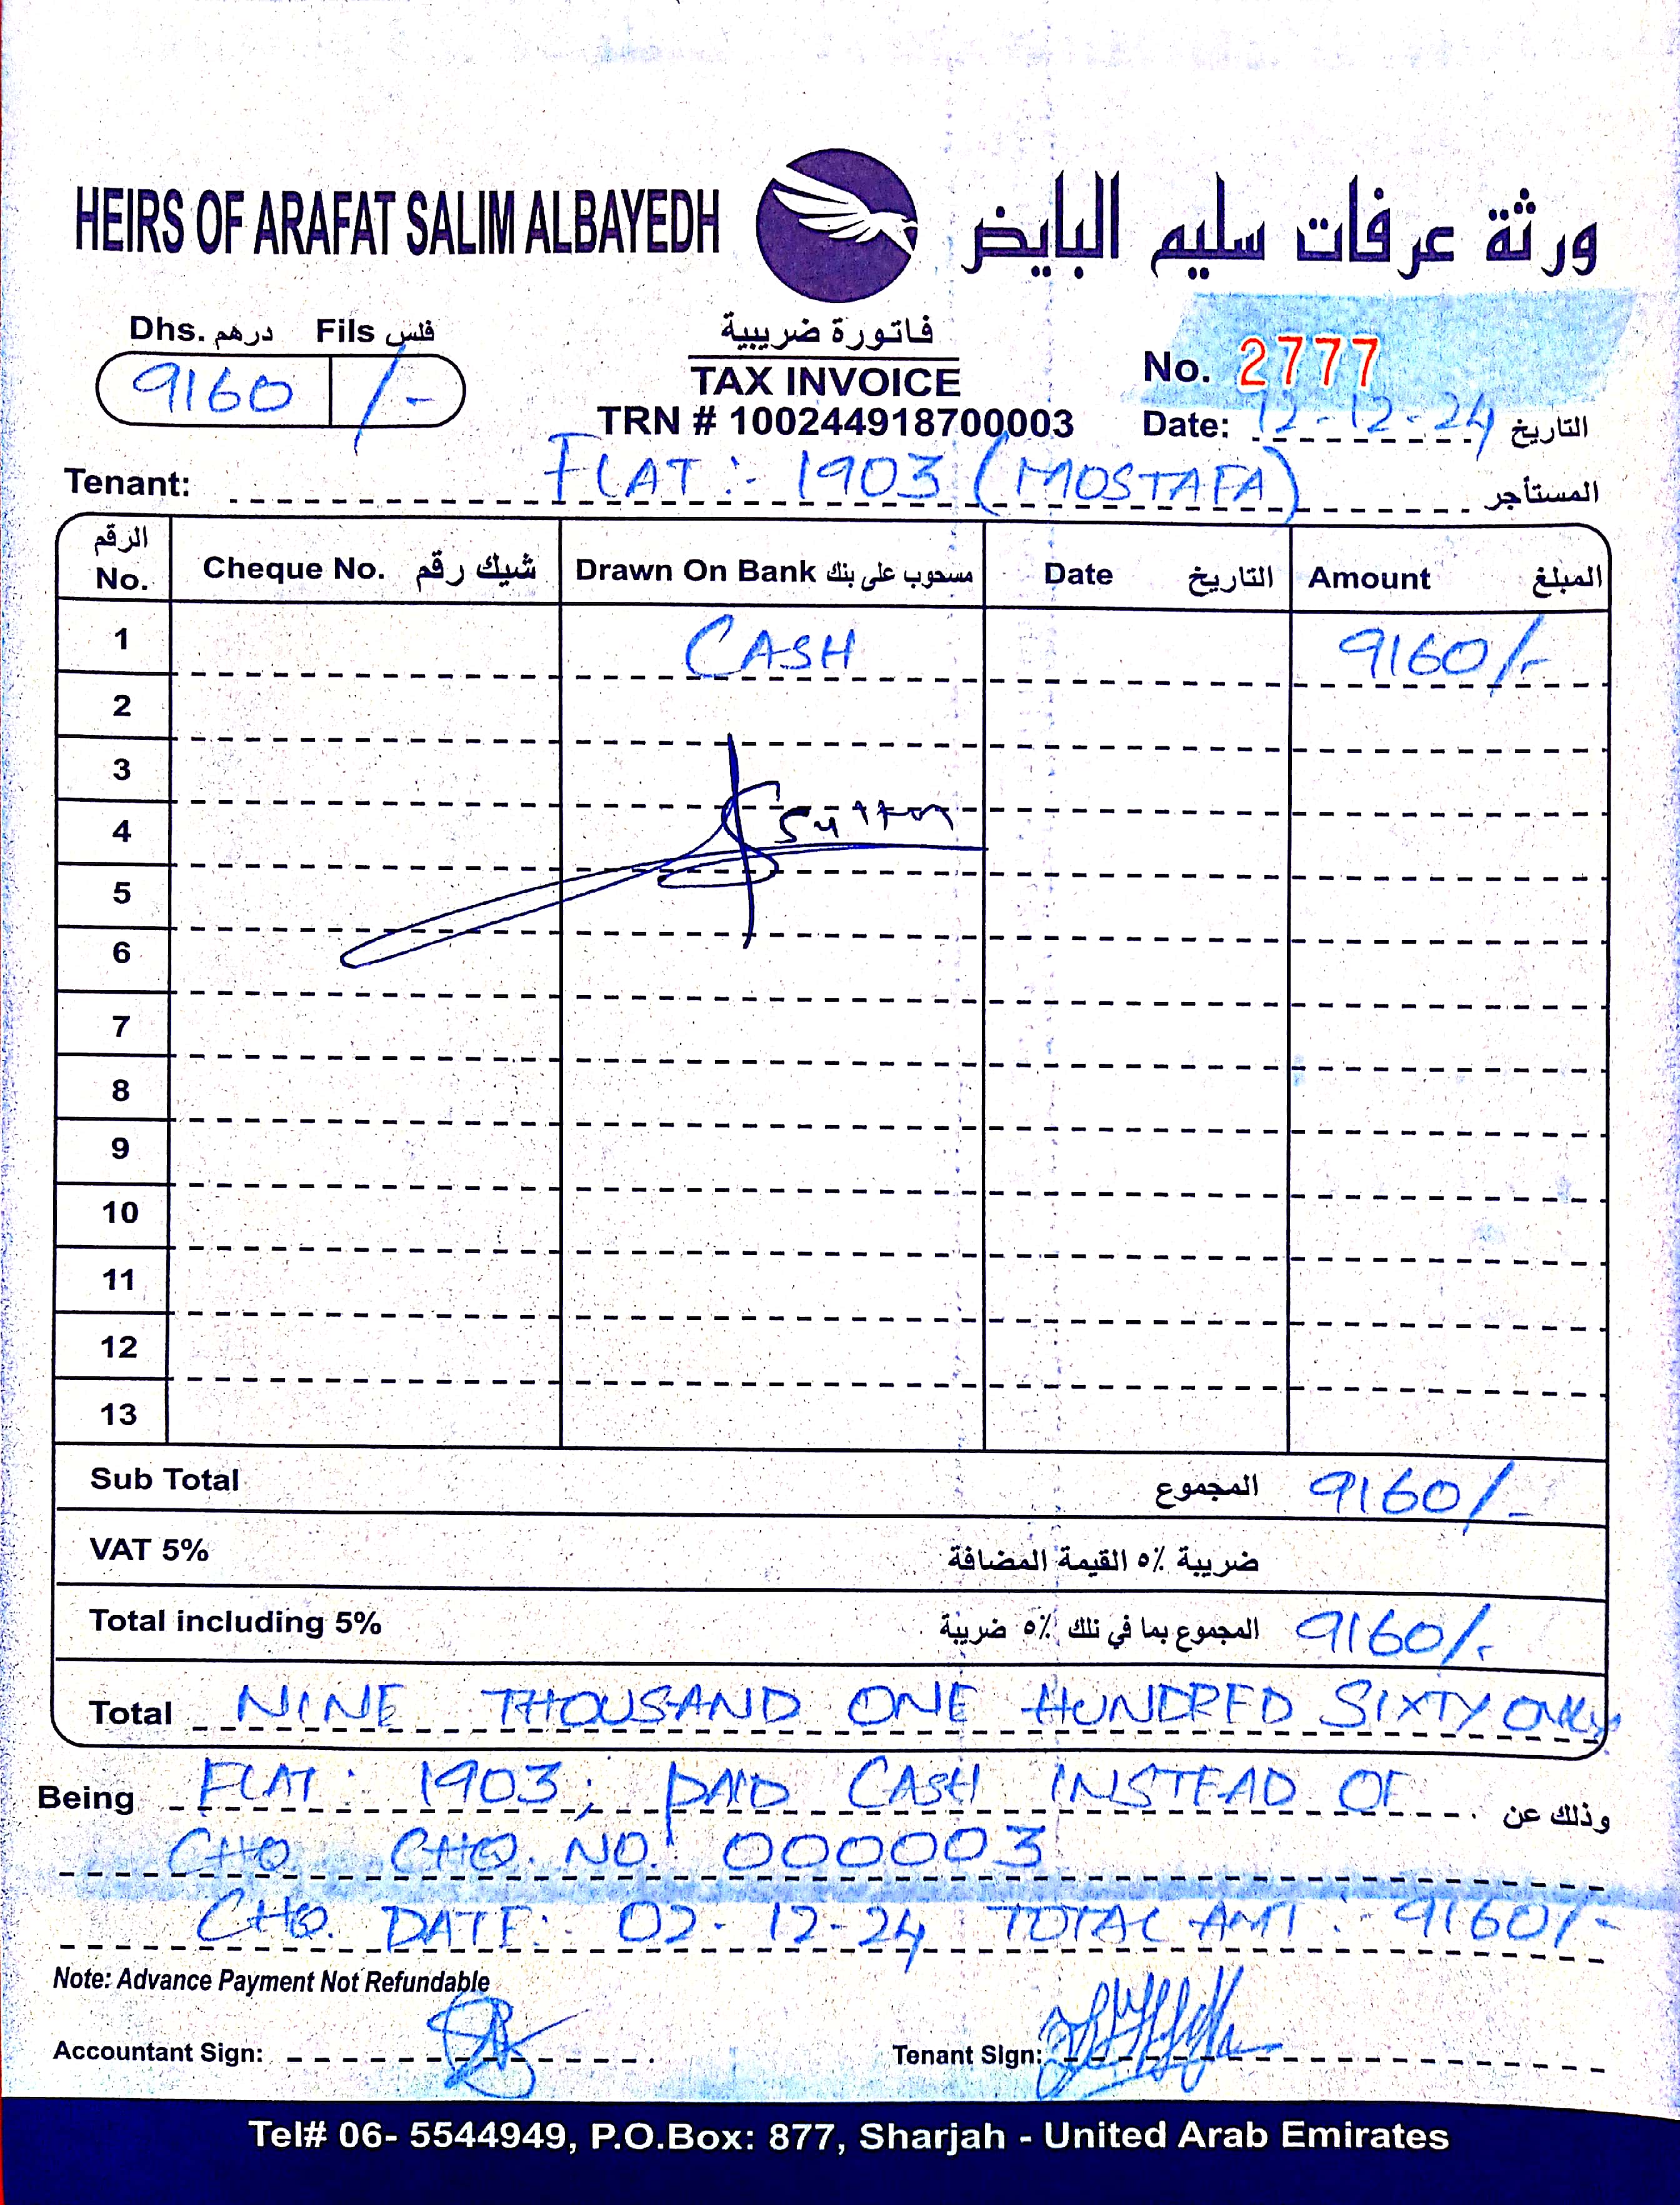 HEIRS OF ARAFAT SALIM ALBAYEDH ورثة عرفات سليم البايض
Dhs. درهم Fils فلس
9160 /-
فاتورة ضريبية
TAX INVOICE
TRN # 100244918700003
No. 2777
Date: 12-12-24 التاريخ
Tenant: FLAT :- 1903 (MOSTAFA) المستأجر
الرقم No. Cheque No. شيك رقم Drawn On Bank مسحوب على بنك Date التاريخ Amount المبلغ
1 CASH 9160/-
2
3
4
5
6
7
8
9
10
11
12
13
Sub Total المجموع 9160/-
VAT 5% ضريبة ٥٪ القيمة المضافة
Total including 5% المجموع بما في ذلك ٥٪ ضريبة 9160/-
Total NINE THOUSAND ONE HUNDRED SIXTY Only
Being FLAT : 1903; PAID CASH INSTEAD OF وذلك عن
CHQ. CHQ. NO: 000003
CHQ. DATE: 02-12-24 TOTAL AMT :- 9160/-
Note: Advance Payment Not Refundable
Accountant Sign: Tenant Sign:
Tel# 06- 5544949, P.O.Box: 877, Sharjah - United Arab Emirates